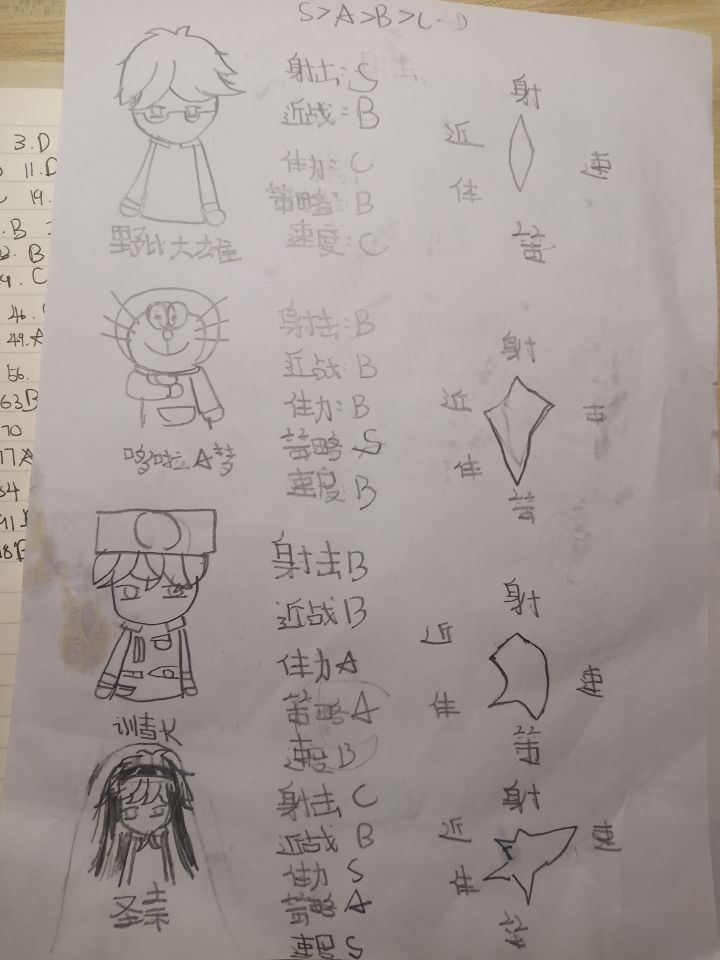 S>A>B>C-D
射击:S
近战:B
体力:C
策略:B
速度:C
射
近
速
体
策
野比大雄
射击:B
近战:B
体力:B
策略 S
速度 B
射
近
速
体
策
哆啦A梦
射击B
近战B
体力A
策略A
速度B
射
近
速
体
策
射击 C
近战 B
体力 S
策略 A
速度 S
射
近
速
体
策
3.D
11.D
19.
B
B
C
46.
49.A
56.
63B
70